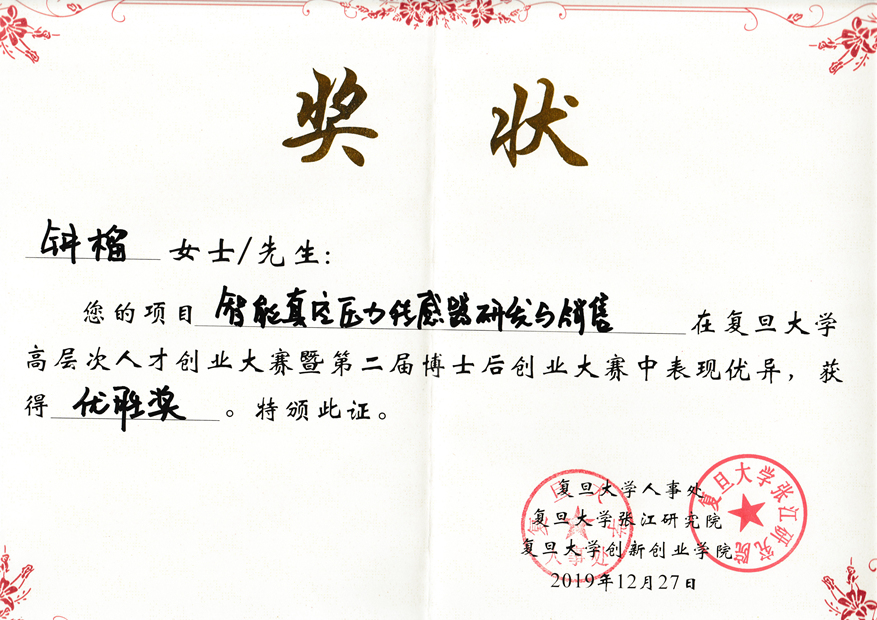 奖 状
钟榴 女士/先生:
您的项目 智能真空压力传感器研发与销售 在复旦大学
高层次人才创业大赛暨第二届博士后创业大赛中表现优异,获
得 优胜奖 。特颁此证。
复旦大学人事处
复旦大学张江研究院
复旦大学创新创业学院
2019年12月27日
复旦大学
人事处
复旦大学张江研究院